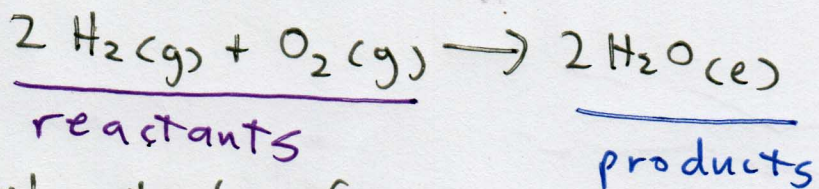 2 H₂(g) + O₂(g) → 2 H₂O(l)
reactants
products